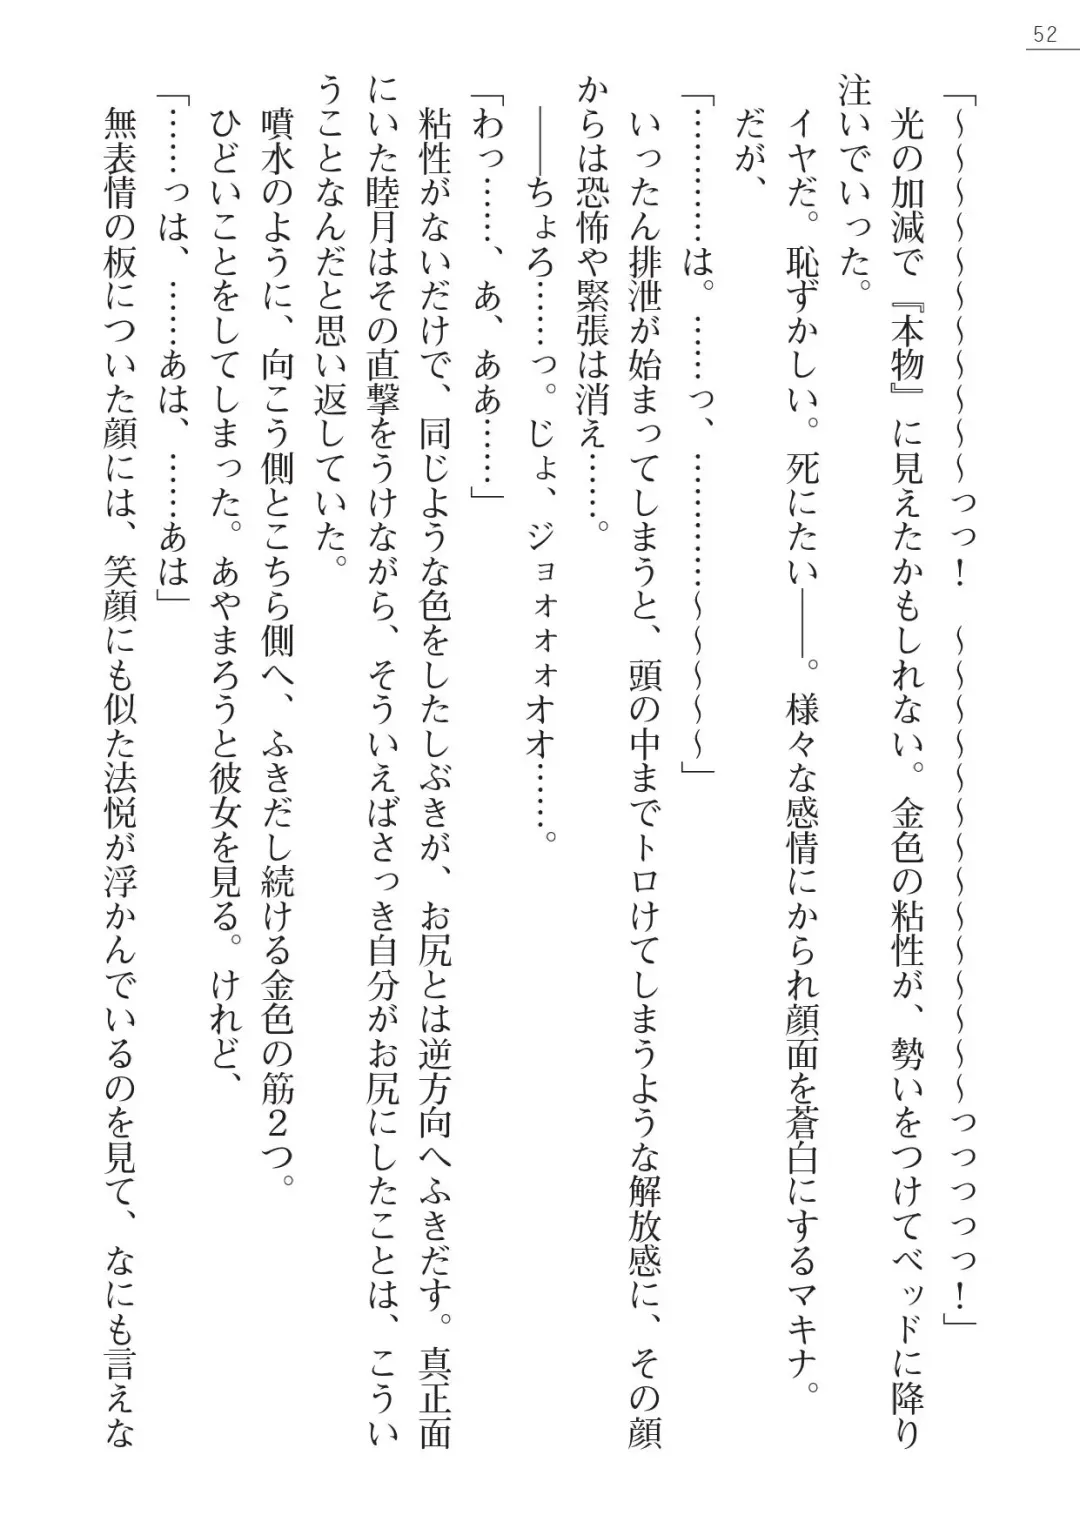 52
「～～～～～～～～～～～っっ！　～～～～～～～～～～～～～～っっっっっ！」
　光の加減で『本物』に見えたかもしれない。金色の粘性が、勢いをつけてベッドに降り
注いでいった。
　イヤだ。恥ずかしい。死にたい――。様々な感情にかられ顔面を蒼白にするマキナ。
　だが、
「…………は。……っ、…………～～～～～」
　いったん排泄が始まってしまうと、頭の中までトロけてしまうような解放感に、その顔
からは恐怖や緊張は消え……。
　――ちょろ……っ。じょ、ジョォォォオオ……。
「わっ……、あ、ああ……」
　粘性がないだけで、同じような色をしたしぶきが、お尻とは逆方向へふきだす。真正面
にいた睦月はその直撃をうけながら、そういえばさっき自分がお尻にしたことは、こうい
うことなんだと思い返していた。
　噴水のように、向こう側とこちら側へ、ふきだし続ける金色の筋２つ。
　ひどいことをしてしまった。あやまろうと彼女を見る。けれど、
「……っは、……あは、……あは」
　無表情の板についた顔には、笑顔にも似た法悦が浮かんでいるのを見て、なにも言えな